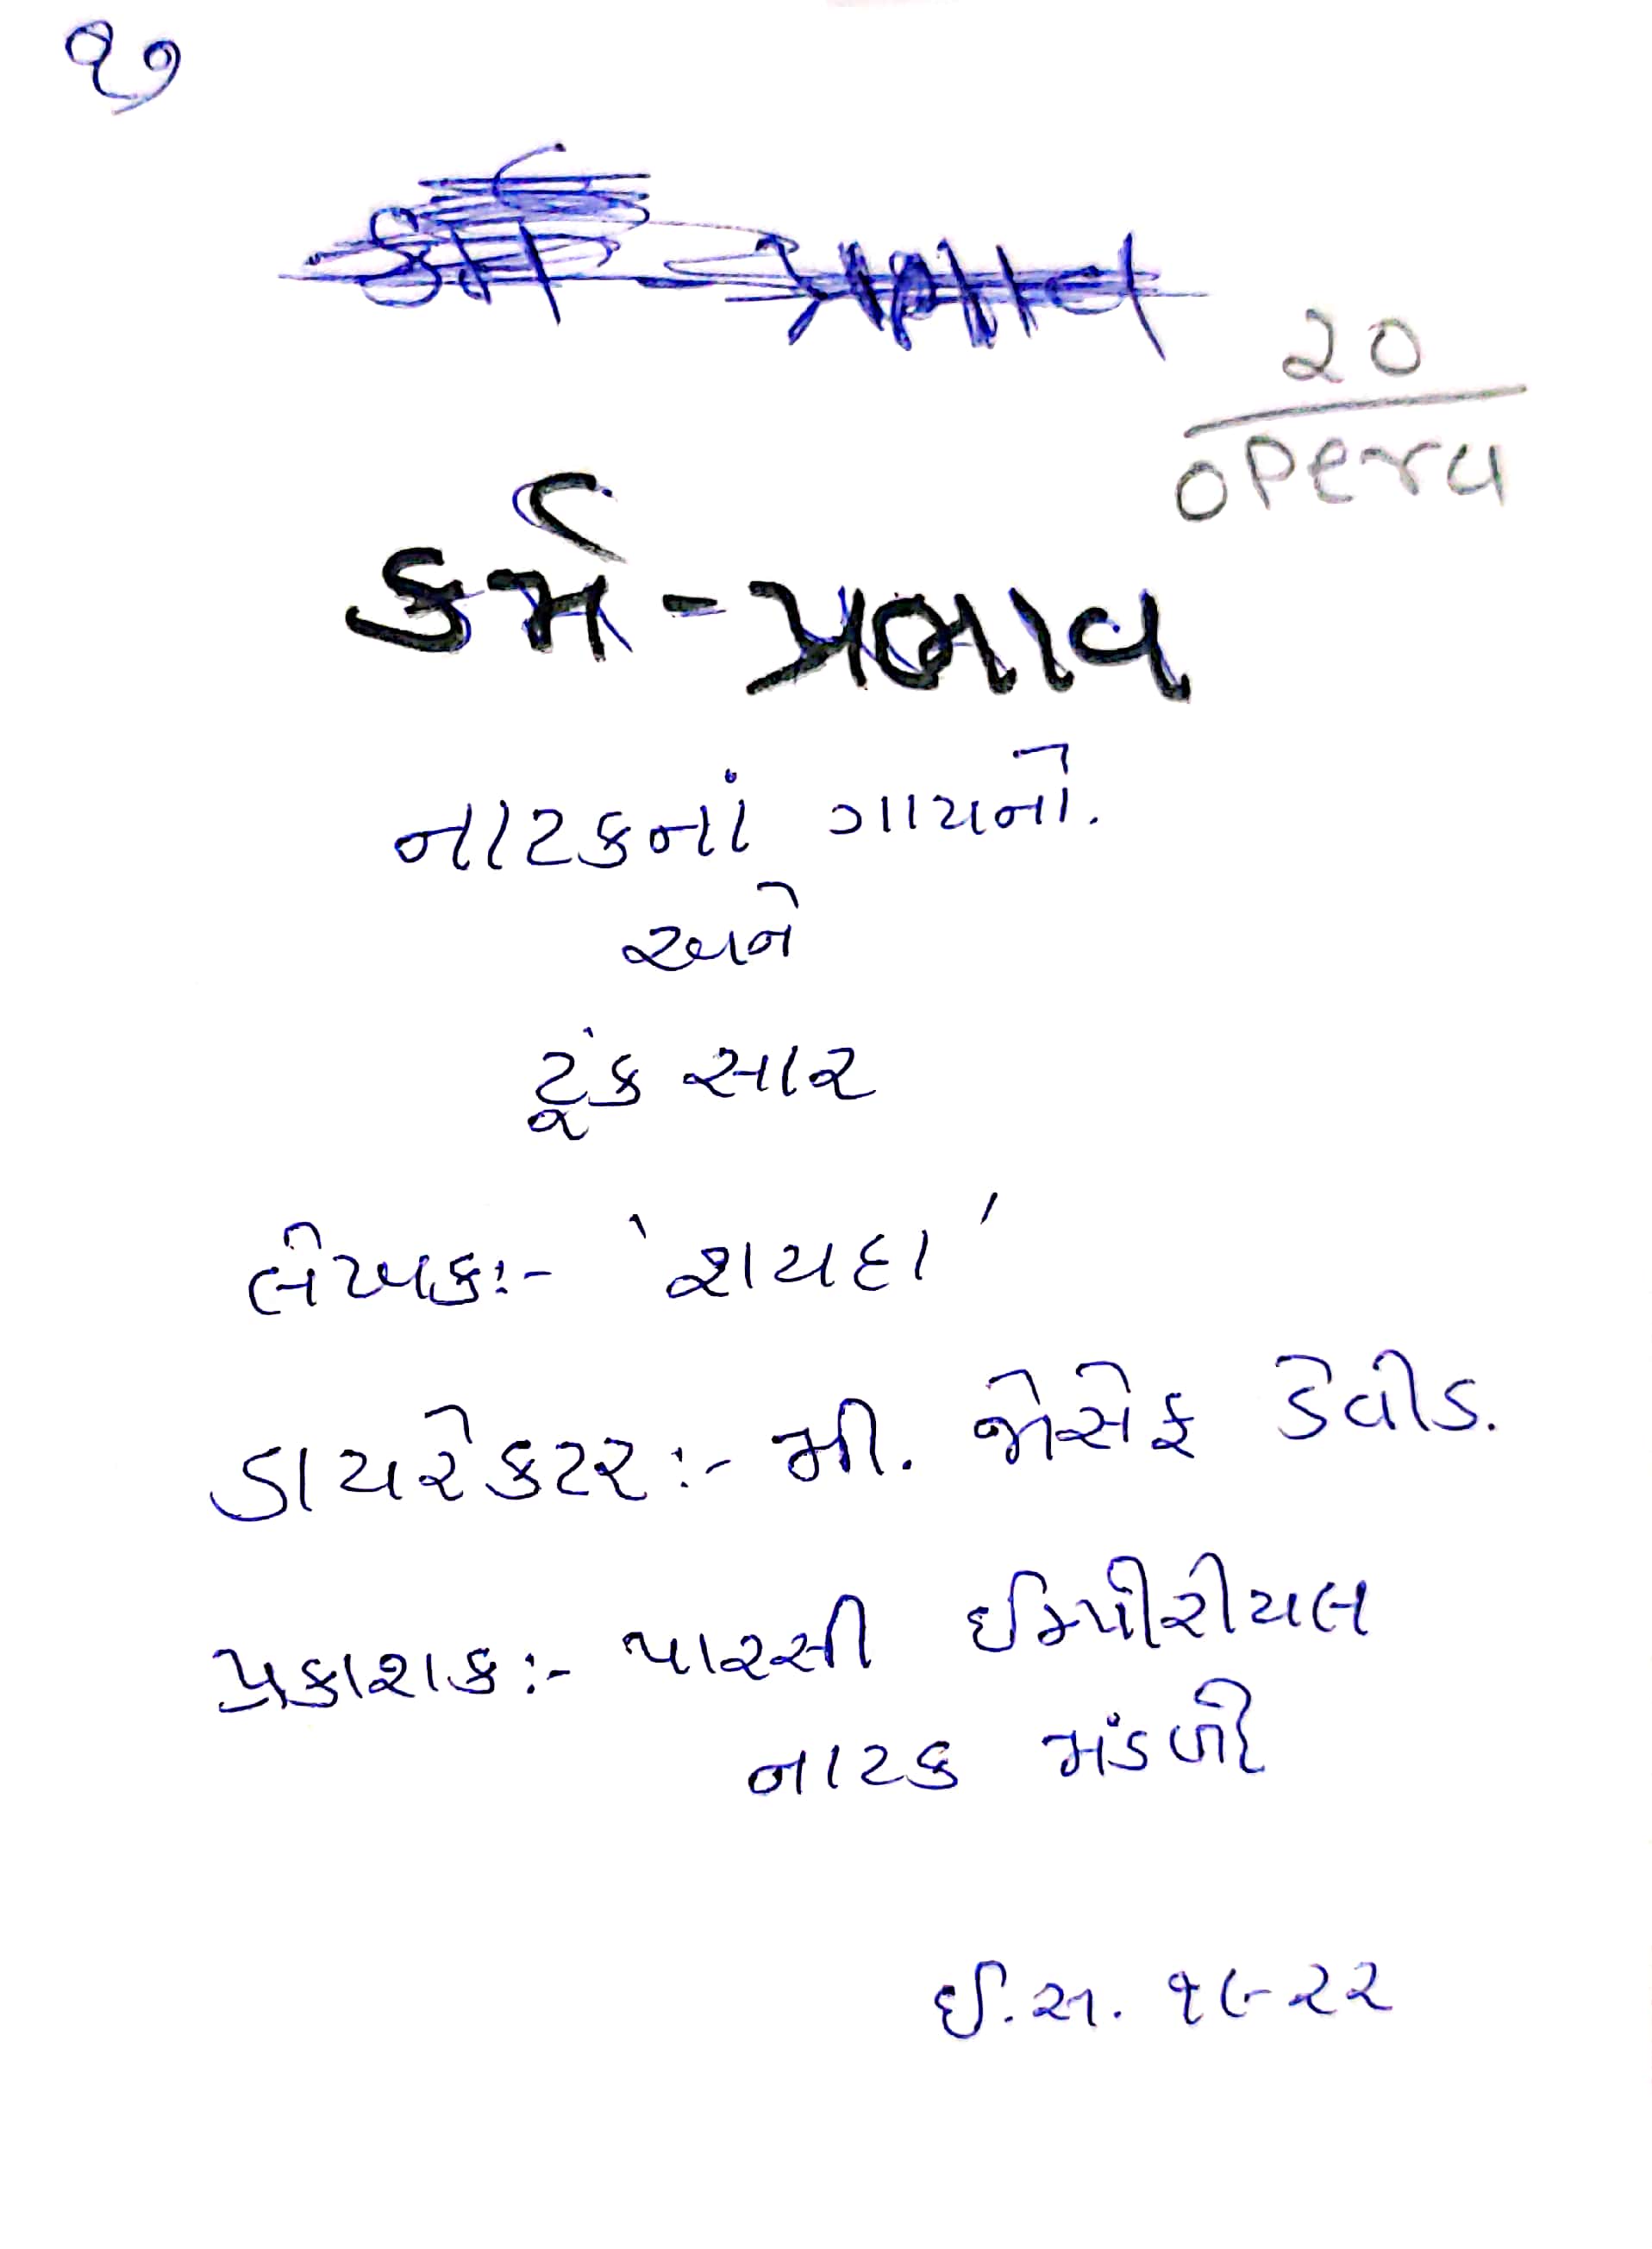 ૧૭
કર્મ - પ્રભાવ
૨૦
opera
કર્મ - પ્રભાવ
નાટકનાં ગાયનો.
અને
ટૂંક સાર
લેખક:- 'શયદા'
ડાયરેકટર:- મી. જોસેફ ડેવીડ.
પ્રકાશક:- પારસી ઈમ્પીરીયલ
નાટક મંડળી
ઈ.સ. ૧૯૨૨